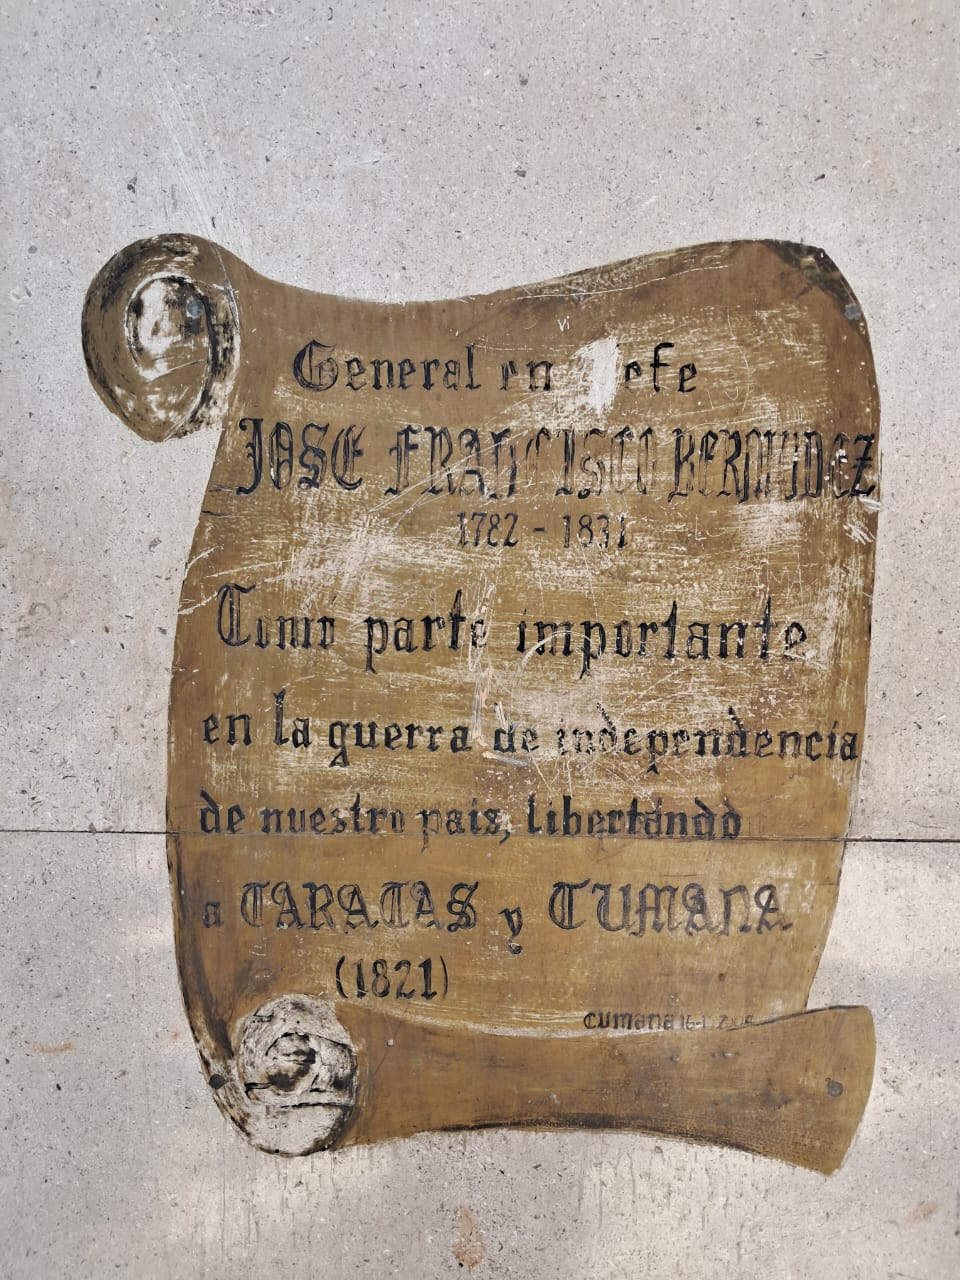 General en efe
JOSE FRANCISCO BERMUDEZ
1782 - 1831
Tomó parte importante
en la guerra de independencia
de nuestro pais, libertando
a CARACAS y CUMANA
(1821)
Cumana